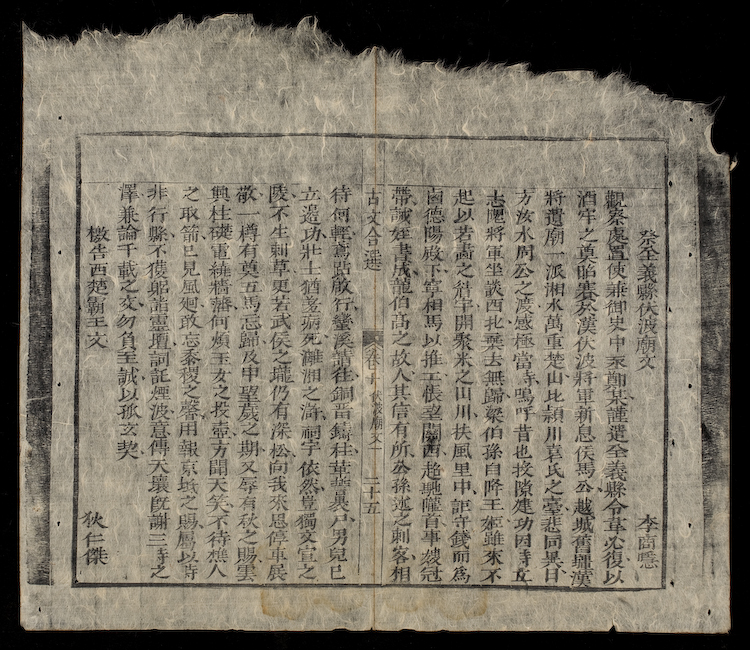 祭全義縣伏波廟文
李商隱
觀察處置使兼御史中丞鄭某謹遣全義縣令韋必復以
酒牢之奠昭賽於漢伏波將軍新息侯馬公越城舊疆漢
將遺廟一派湘水萬重楚山比潁川袁氏之臺悲同異日
方汝水周公之渡感極當時嗚呼昔也投隙建功因時立
志隗將軍坐談西北棄去無歸梁伯孫自降王姬雖來不
起以若畫之眉宇開聚米之山川扶風里中詎守錢而為
鹵德陽殿下寧相馬以推工悵望關西超馳隴首事嫂冠
帶誡姪書成龍伯高之故人其信有所公孫述之刺客相
古文合選
卷十 伏波廟文 二十五
待何輕鳶跕啟行蠻溪請往銅留鑄柱革裹尸男兒已
立邊功壯士猶羞病死灕湘之滸祠宇依然豈獨文宣之
陵不生刺草更若武侯之壠仍有深松向我來思停車展
敬一樽有奠五馬忘歸及申望歲之期又辱有秋之賜雲
興柱礎電繞牆藩何煩玉女之投壺方聞天笑不待樵人
之取箭已見風迴敢忘黍稷之馨用報京坻之賜屬以時
非行縣不獲躬詣靈壇詞託煙波意傳天壤旣謝三時之
澤兼論千載之交勿負至誠以孤玄契
檄告西楚霸王文
狄仁傑